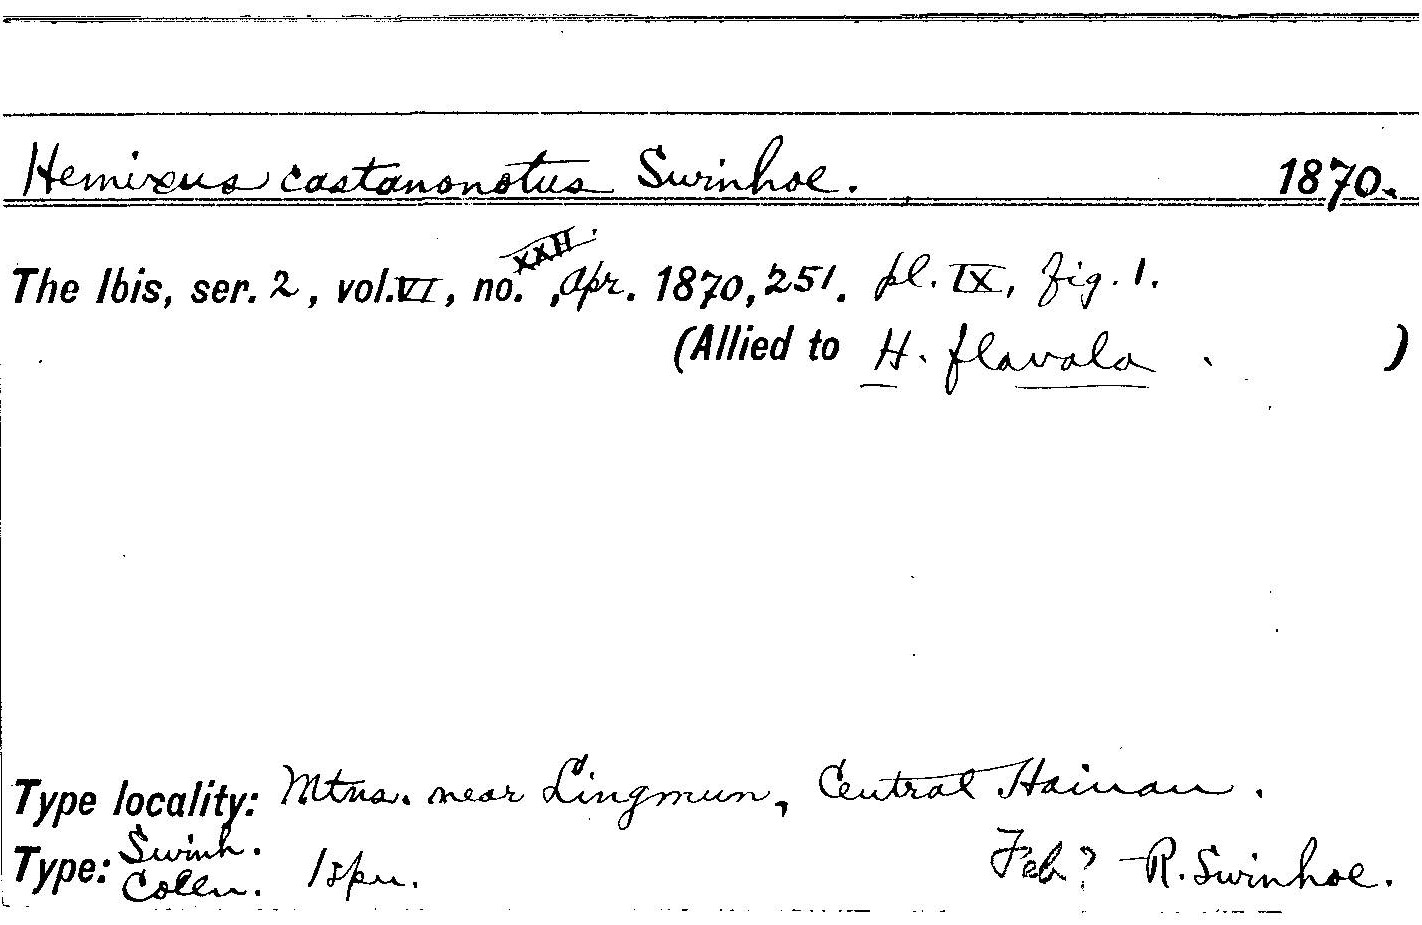 Hemixus castanonotus Swinhoe. 1870.
The Ibis, ser. 2, vol. VI, no. XXII, Apr. 1870, 251. pl. IX, fig. 1.
(Allied to H. flavala . )
Type locality: Mtns. near Lingmun, Central Hainan.
Type: Swinh. Colln. 1 spn. Feb? R. Swinhoe.